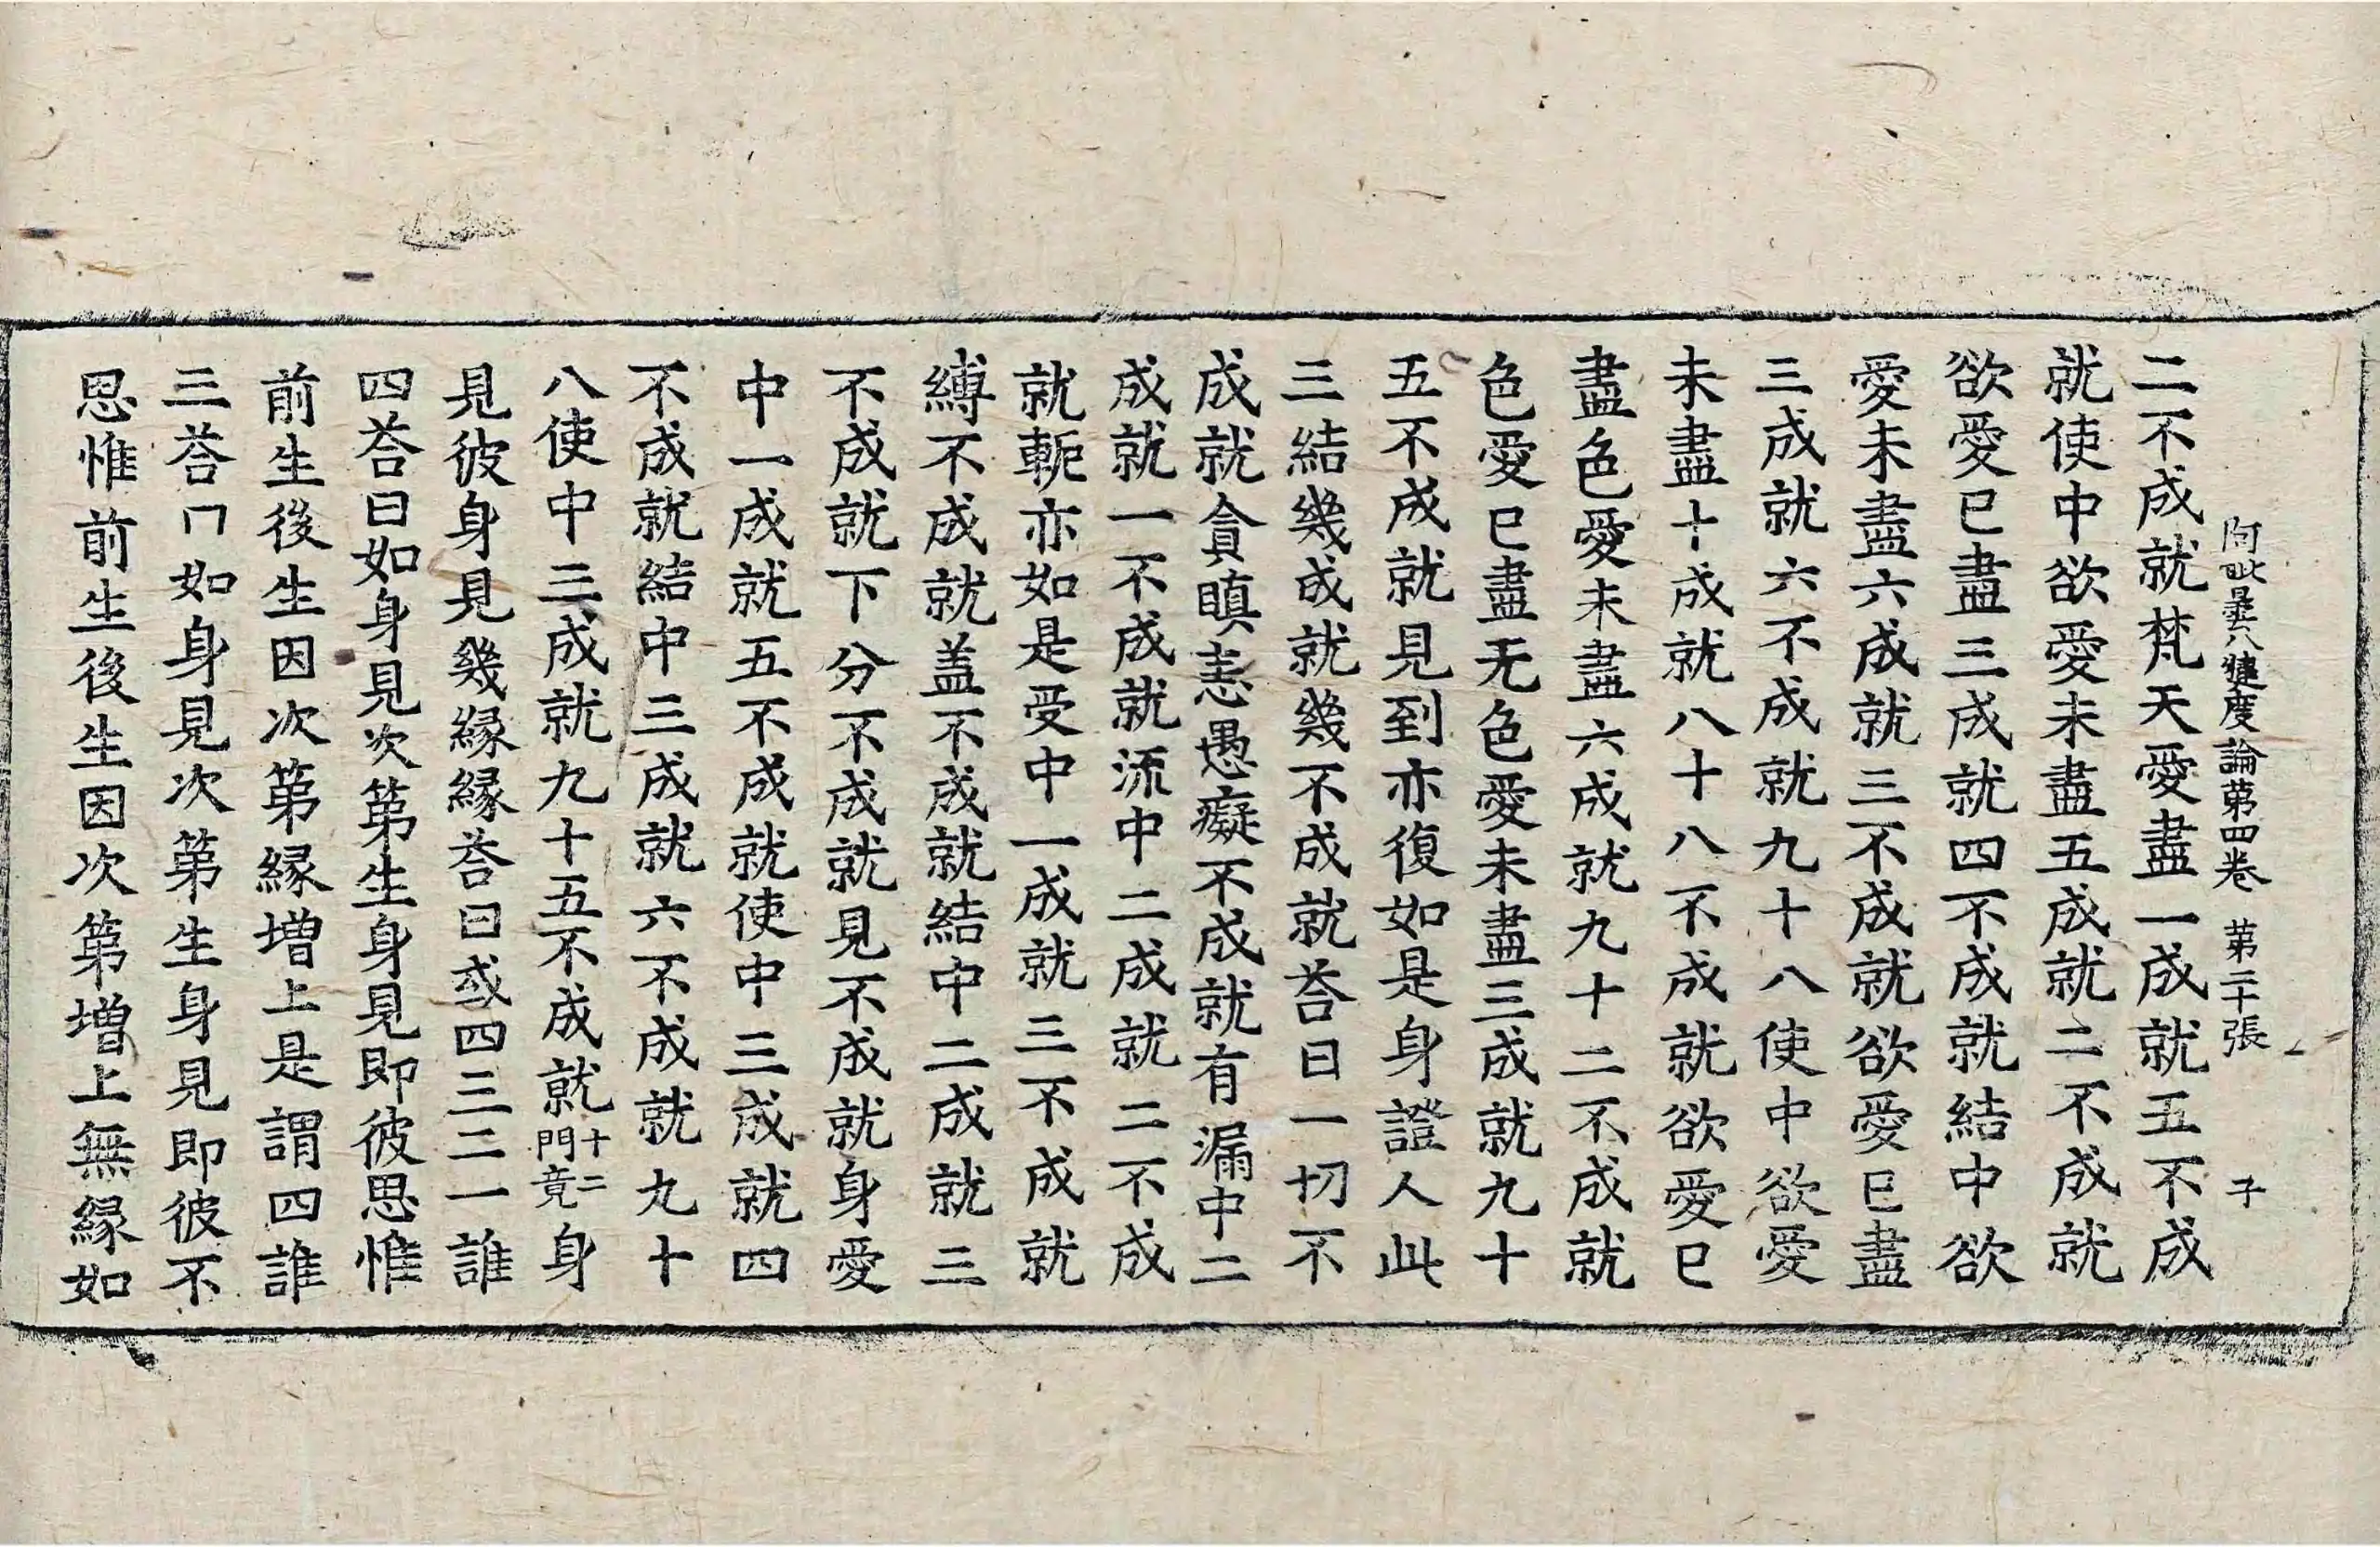 阿毗曇八犍度論第四卷　第二十張　子
二不成就梵天愛盡一成就五不成
就使中欲愛未盡五成就二不成就
欲愛已盡三成就四不成就結中欲
愛未盡六成就三不成就欲愛已盡
三成就六不成就九十八使中欲愛
未盡十成就八十八不成就欲愛已
盡色愛未盡六成就九十二不成就
色愛已盡无色愛未盡三成就九十
五不成就見到亦復如是身證人此
三結幾成就幾不成就荅曰一切不
成就貪瞋恚愚癡不成就有漏中二
成就一不成就流中二成就二不成
就軛亦如是受中一成就三不成就
縛不成就盖不成就結中二成就三
不成就下分不成就見不成就身愛
中一成就五不成就使中三成就四
不成就結中三成就六不成就九十
八使中三成就九十五不成就十二門竟身
見彼身見幾縁縁荅曰或四三二一誰
四荅曰如身見次第生身見即彼思惟
前生後生因次第縁增上是謂四誰
三荅曰如身見次第生身見即彼不
思惟前生後生因次第增上無縁如